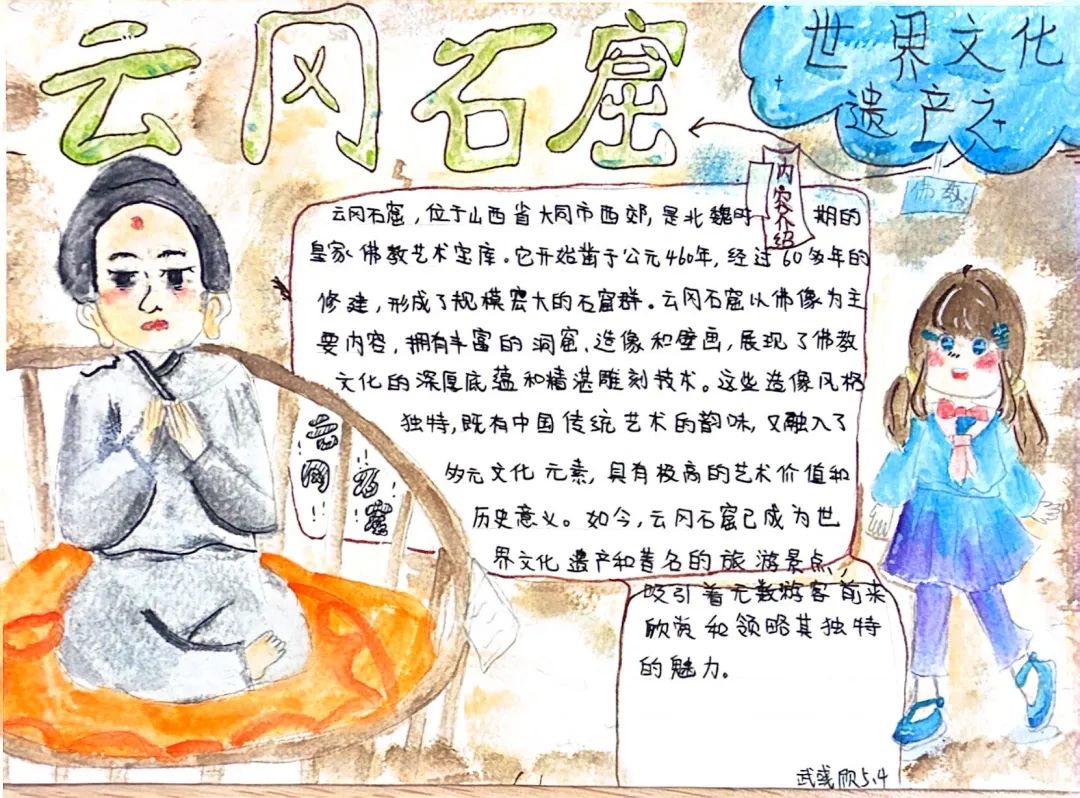 云冈石窟
世界文化
遗产之
佛教
内容介绍
云冈石窟，位于山西省大同市西郊，是北魏时期的
皇家佛教艺术宝库。它开始凿于公元460年，经过60多年的
修建，形成了规模宏大的石窟群。云冈石窟以佛像为主
要内容，拥有丰富的洞窟、造像和壁画，展现了佛教
文化的深厚底蕴和精湛雕刻技术。这些造像风格
独特，既有中国传统艺术的韵味，又融入了
多元文化元素，具有极高的艺术价值和
历史意义。如今，云冈石窟已成为世
界文化遗产和著名的旅游景点，
吸引着无数游客前来
欣赏和领略其独特
的魅力。
云冈
石窟
5.4